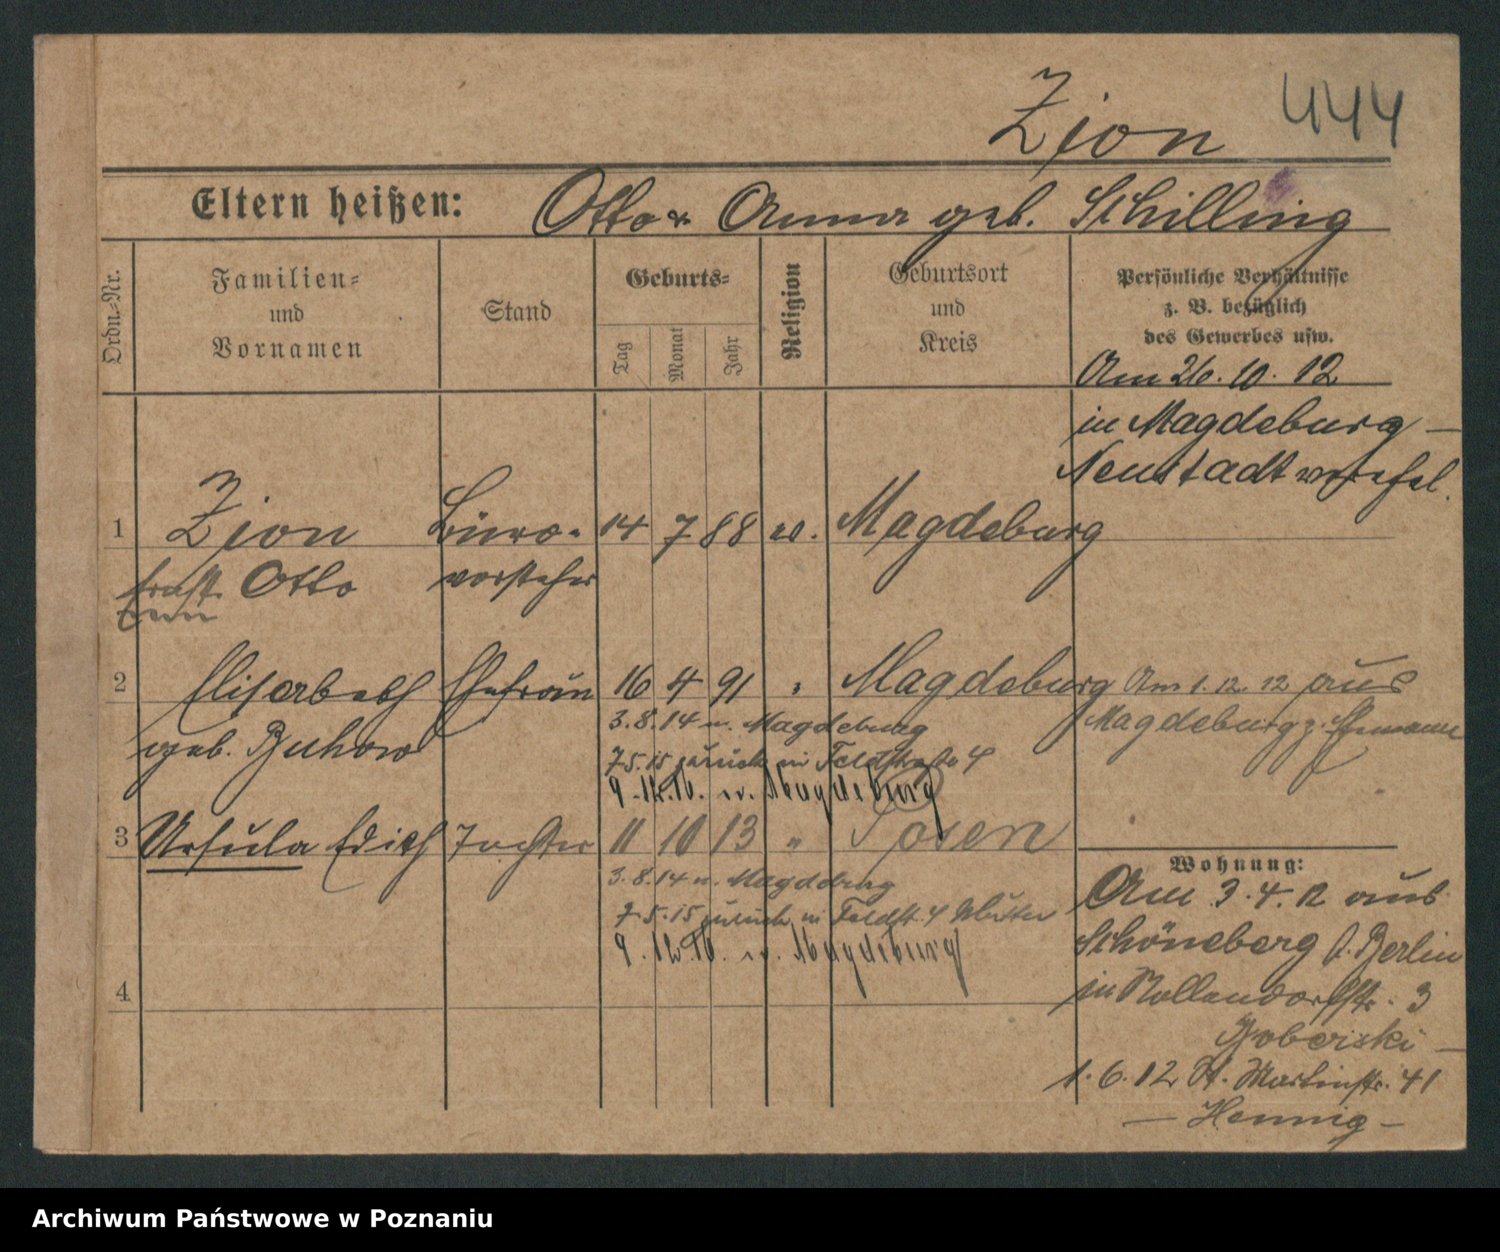 Zion 444
Eltern heißen: Otto u. Anna geb. Schilling
Ordn.-Nr.
Familien-
und
Vornamen
Stand
Geburts-
Tag
Monat
Jahr
Religion
Geburtsort
und
Kreis
Persönliche Verhältnisse
z. B. bezüglich
des Gewerbes usw.
Am 26. 10. 12
in Magdeburg –
Neustadt
1 Zion Büro- 14 7 88 ev. Magdeburg
Ernst Otto vorsteher
2 Elisabeth Ehefrau 16 4 91 " Magdeburg Am 1. 12. 12 aus
geb. Buhow 3.8.14 n. Magdeburg Magdeburg z. Ehemann
7.5.15 zurück in Feldstraße 4
9.12.16. n. Magdeburg
3 Ursula Edith Tochter 11 10 13 " Posen
3.8.14 n. Magdeburg
7.5.15 zurück in Feldstr. 4 Mutter
9.12.16. n. Magdeburg
4
Wohnung:
Am 3. 4. 12 aus
Schöneberg b. Berlin
in Nollendorfstr. 3
1. 6. 12 St. Martinstr. 41
– Hennig –
Archiwum Państwowe w Poznaniu